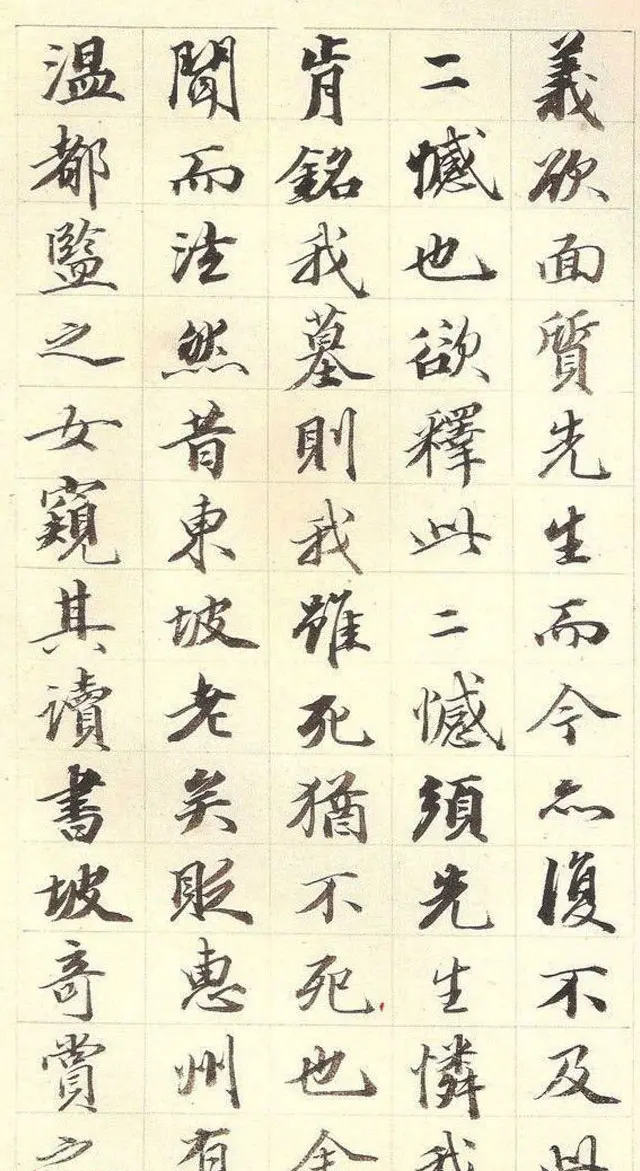 義欲面質先生而今亦復不及此
二憾也欲釋此二憾須先生憐我
肯銘我墓則我雖死猶不死也余
聞而泫然昔東坡老矣貶惠州有
溫都監之女窺其讀書坡奇賞之